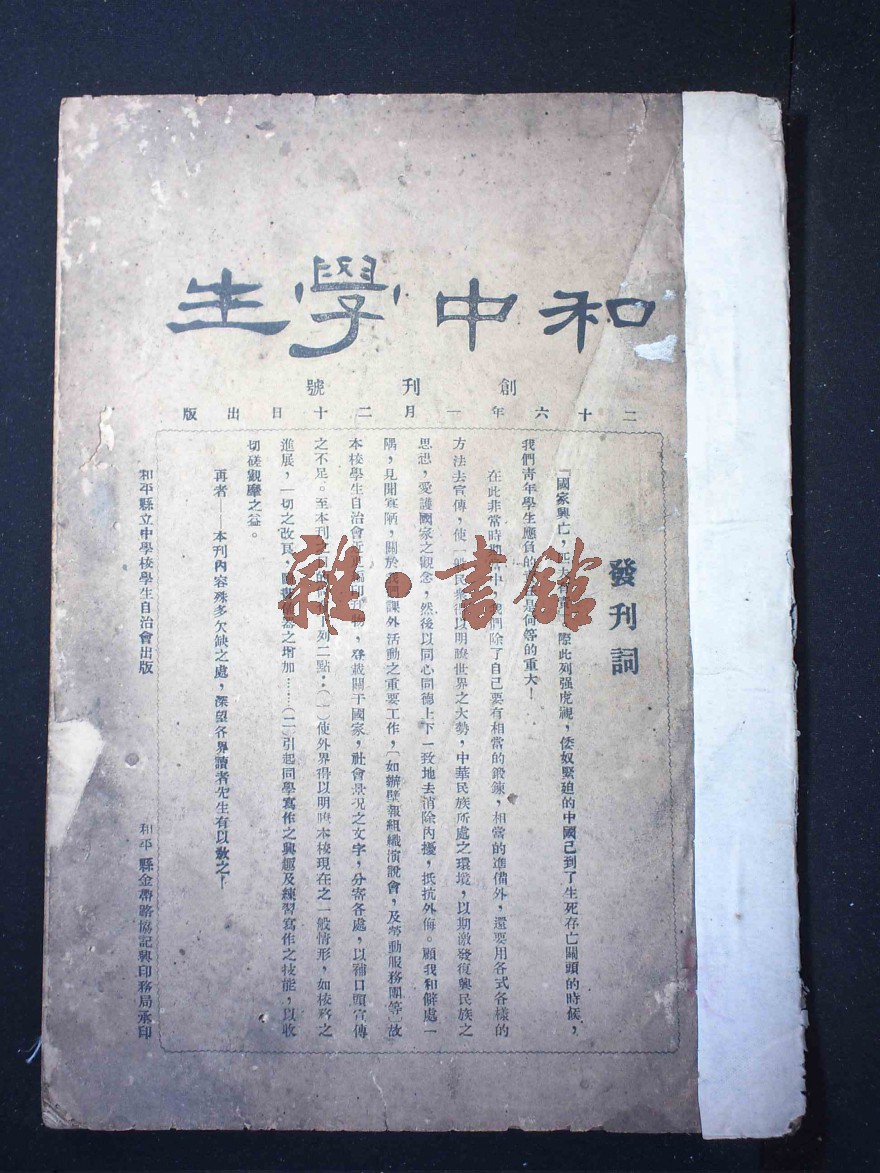 和中學生
創刊號
二十六年一月二十日出版
發刊詞
『國家興亡，匹際此列强虎視，倭奴緊迫的中國已到了生死存亡關頭的時候，
我們青年學生應負的是何等的重大！
在此非常時期中們除了自己要有相當的鍛鍊，相當的準備外，還要用各式各樣的
方法去宣傳，使一般民衆得以明瞭世界之大勢，中華民族所處之環境，以期激發復興民族之
思想，愛護國家之觀念，然後以同心同德上下一致地去消除內擾，抵抗外侮。顧我和僻處一
隅，見聞寡陋，關於我們課外活動之重要工作，（如辦壁報組織演說會，及勞動服務團等）故
本校學生自治會印刊物，登載關于國家，社會景况之文字，分寄各處，以補口頭宣傳
之不足。至本刊之目的列二點：（一）使外界得以明瞭本校現在之一般情形，如校務之
進展，一切之改良，圖書儀器之增加……（二）引起同學寫作之興趣及練習寫作之技能，以收
切磋觀摩之益。
再者——本刊內容殊多欠缺之處，深望各界讀者先生有以教之！
和平縣立中學校學生自治會出版
和平縣金帶路協記興印務局承印
雜·書館